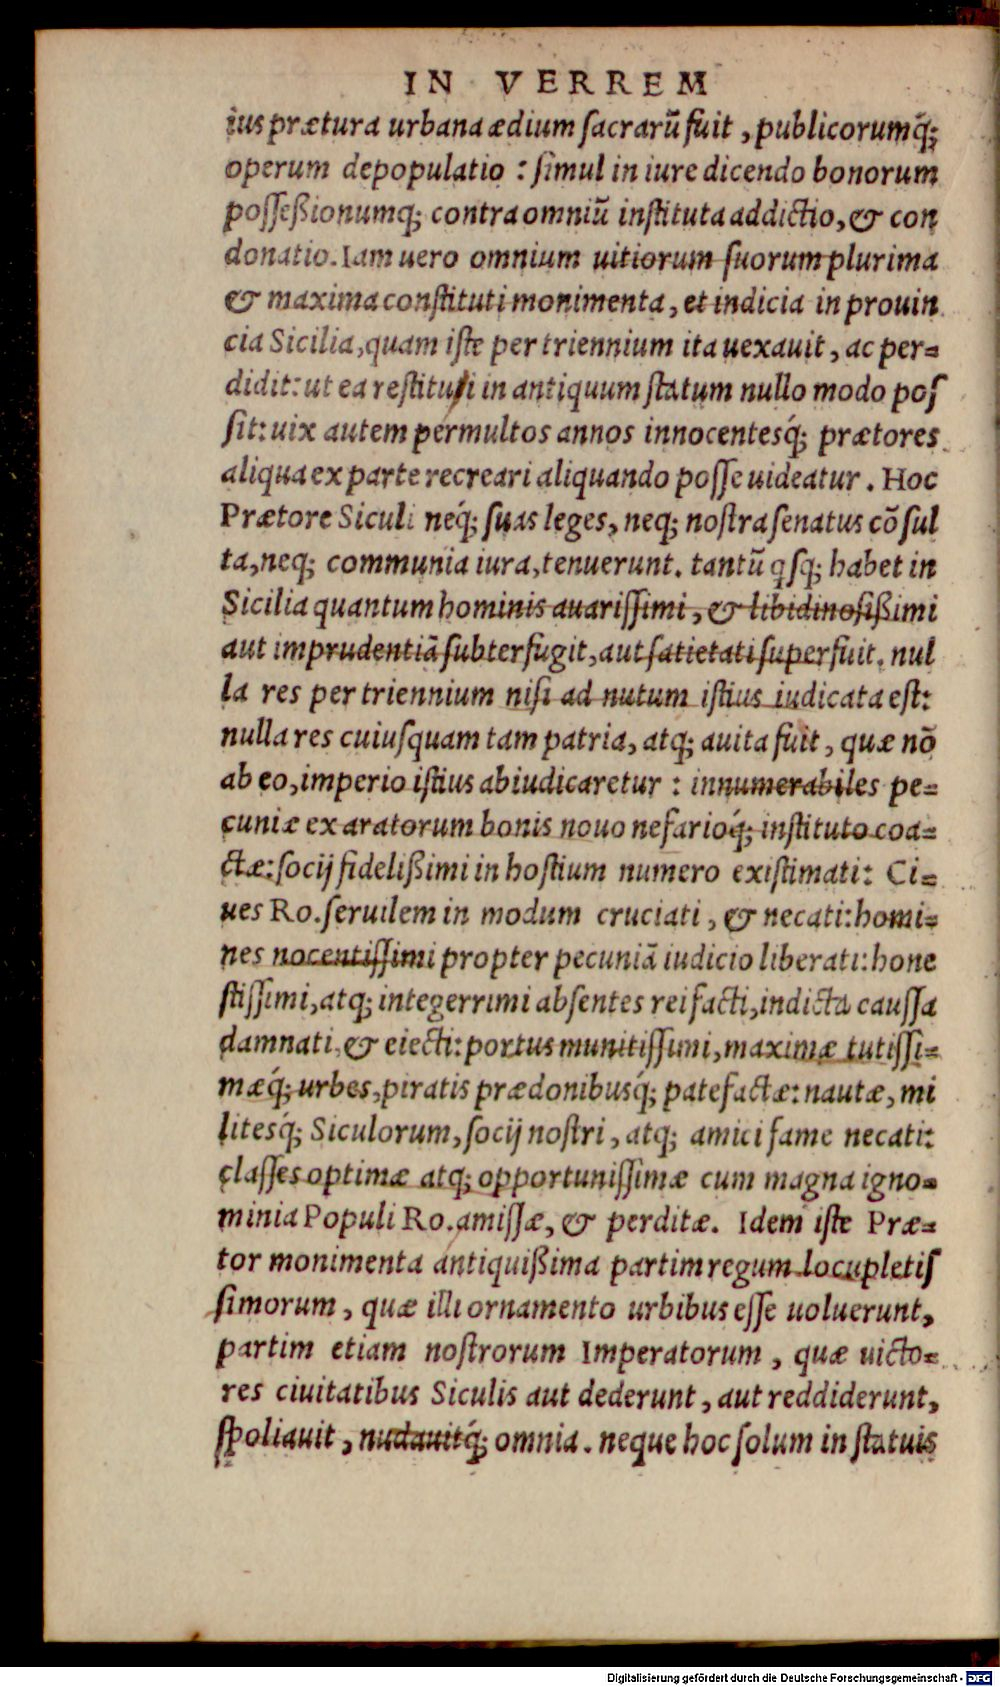 IN VERREM
ius prætura urbana ædium sacrarũ fuit, publicorumq́;
operum depopulatio : simul in iure dicendo bonorum
posseßionumq; contra omniũ instituta addictio, & con
donatio. Iam uero omnium uitiorum suorum plurima
& maxima constituti monimenta, et indicia in prouin
cia Sicilia, quam iste per triennium ita uexauit, ac per=
didit: ut ea restitui in antiquum statum nullo modo pos
sit: uix autem permultos annos innocentesq́; prætores
aliqua ex parte recreari aliquando posse uideatur. Hoc
Prætore Siculi neq́; suas leges, neq; nostra senatus cõsul
ta, neq; communia iura, tenuerunt. tantũ qsq; habet in
Sicilia quantum hominis auarissimi, & libidinosißimi
aut imprudentiã subterfugit, aut satietati superfuit. nul
la res per triennium nisi ad nutum istius iudicata est:
nulla res cuiusquam tam patria, atq; auita fuit, quæ nõ
ab eo, imperio istius abiudicaretur : innumerabiles pe=
cuniæ ex aratorum bonis nouo nefarioq́; instituto coa=
ctæ: socij fidelißimi in hostium numero existimati: Ci=
ues Ro. seruilem in modum cruciati, & necati: homi=
nes nocentissimi propter pecuniã iudicio liberati: hone
stissimi, atq; integerrimi absentes rei facti, indicta caussa
damnati, & eiecti: portus munitissimi, maximæ tutissi=
mæq́; urbes, piratis prædonibusq́; patefactæ: nautæ, mi
litesq́; Siculorum, socij nostri, atq; amici fame necati:
classes optimæ atq; opportunissimæ cum magna igno=
minia Populi Ro. amissæ, & perditæ. Idem iste Præ=
tor monimenta antiquißima partim regum locupletis
simorum, quæ illi ornamento urbibus esse uoluerunt,
partim etiam nostrorum Imperatorum, quæ uicto=
res ciuitatibus Siculis aut dederunt, aut reddiderunt,
spoliauit, nudauitq́; omnia. neque hoc solum in statuis
Digitalisierung gefördert durch die Deutsche Forschungsgemeinschaft - DFG